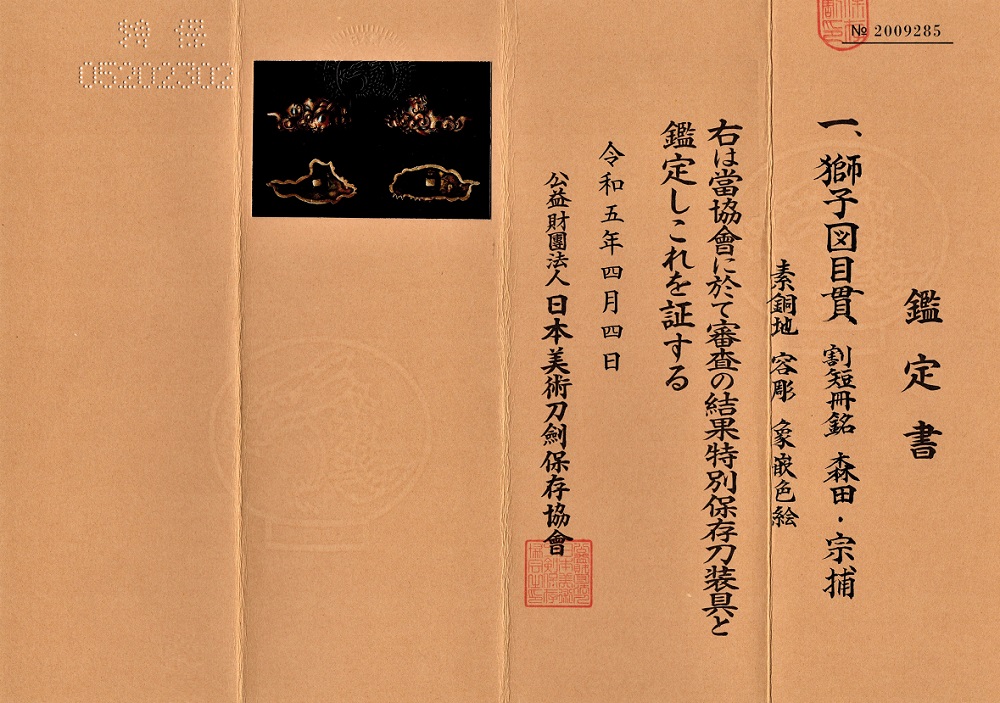 № 2009285
鑑定書
一、獅子図目貫 割短冊銘 森田・宗捕
素銅地 容彫 象嵌色絵
右は當協會に於て審査の結果特別保存刀装具と
鑑定しこれを証する
令和五年四月四日
公益財團法人日本美術刀劍保存協會
特保
05202302